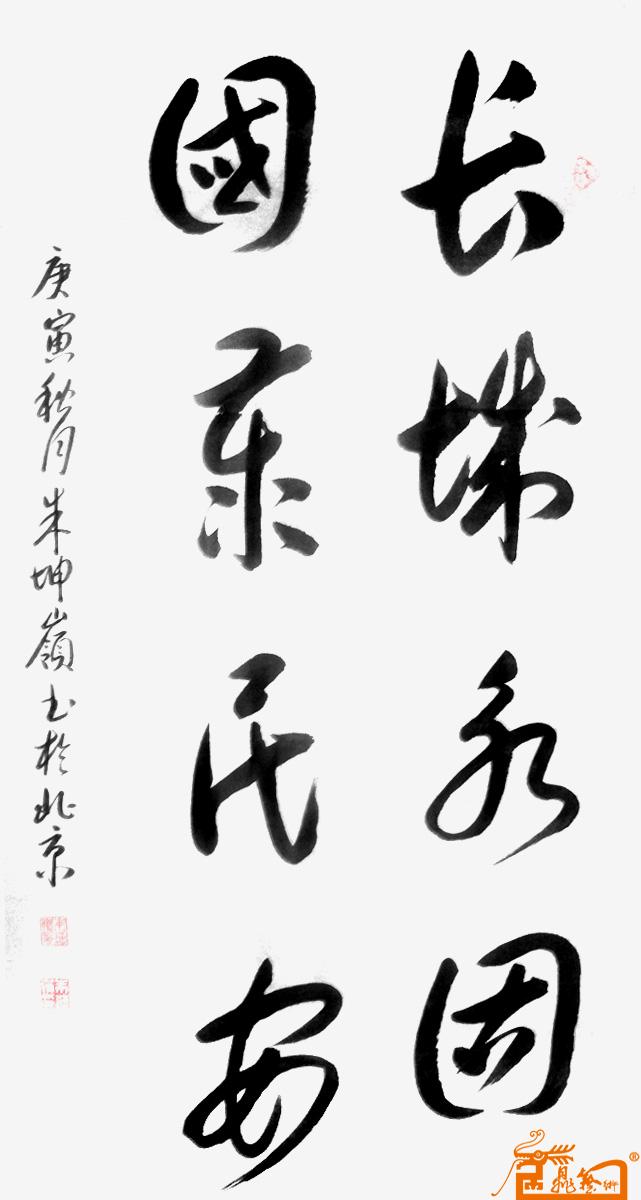 长城永固
國泰民安
庚寅秋月朱坤嶺书於北京